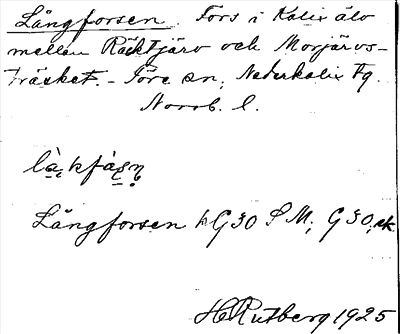 Långforsen. Fors i Kalix älv
mellan Räktjärv och Morjärvs-
träsket. - Töre sn, Nederkalix tg.
Norrb. l.
Långforsen G30 S M; G30, ek
H Rutberg 1925